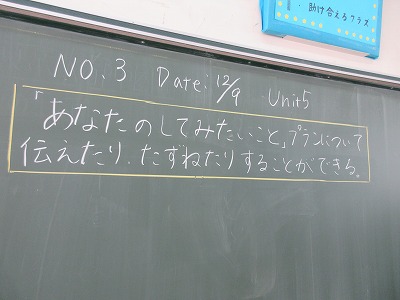 1. 助け合えるクラス
NO.3 Date: 12/9 Unit5
「あなたのしてみたいこと」プランについて
伝えたり、たずねたりすることができる。